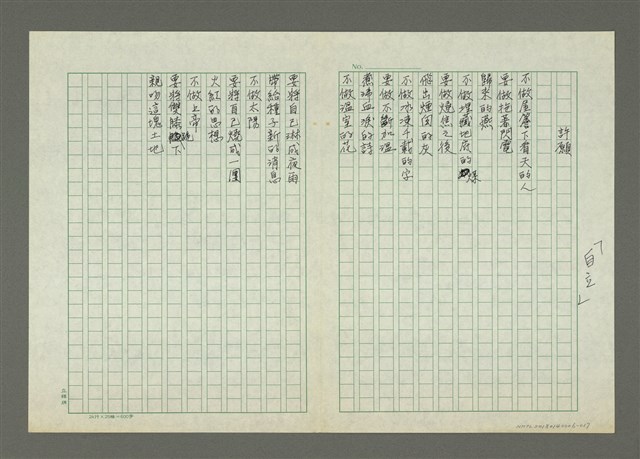 「自立」
No.
許願
不做屋簷下看天的人
要做拖著閃電
歸來的燕
不做埋藏地底的煤
要做燒焦之後
飛出煙囪的灰
不做冰凍千載的字
要做不斷加溫
煮沸血淚的詩
不做溫室的花
要將自己淋成夜雨
帶給種子新的消息
不做太陽
要將自己燒成一團
火紅的思想
不做上帝
要將雙膝跪下
親吻這塊土地